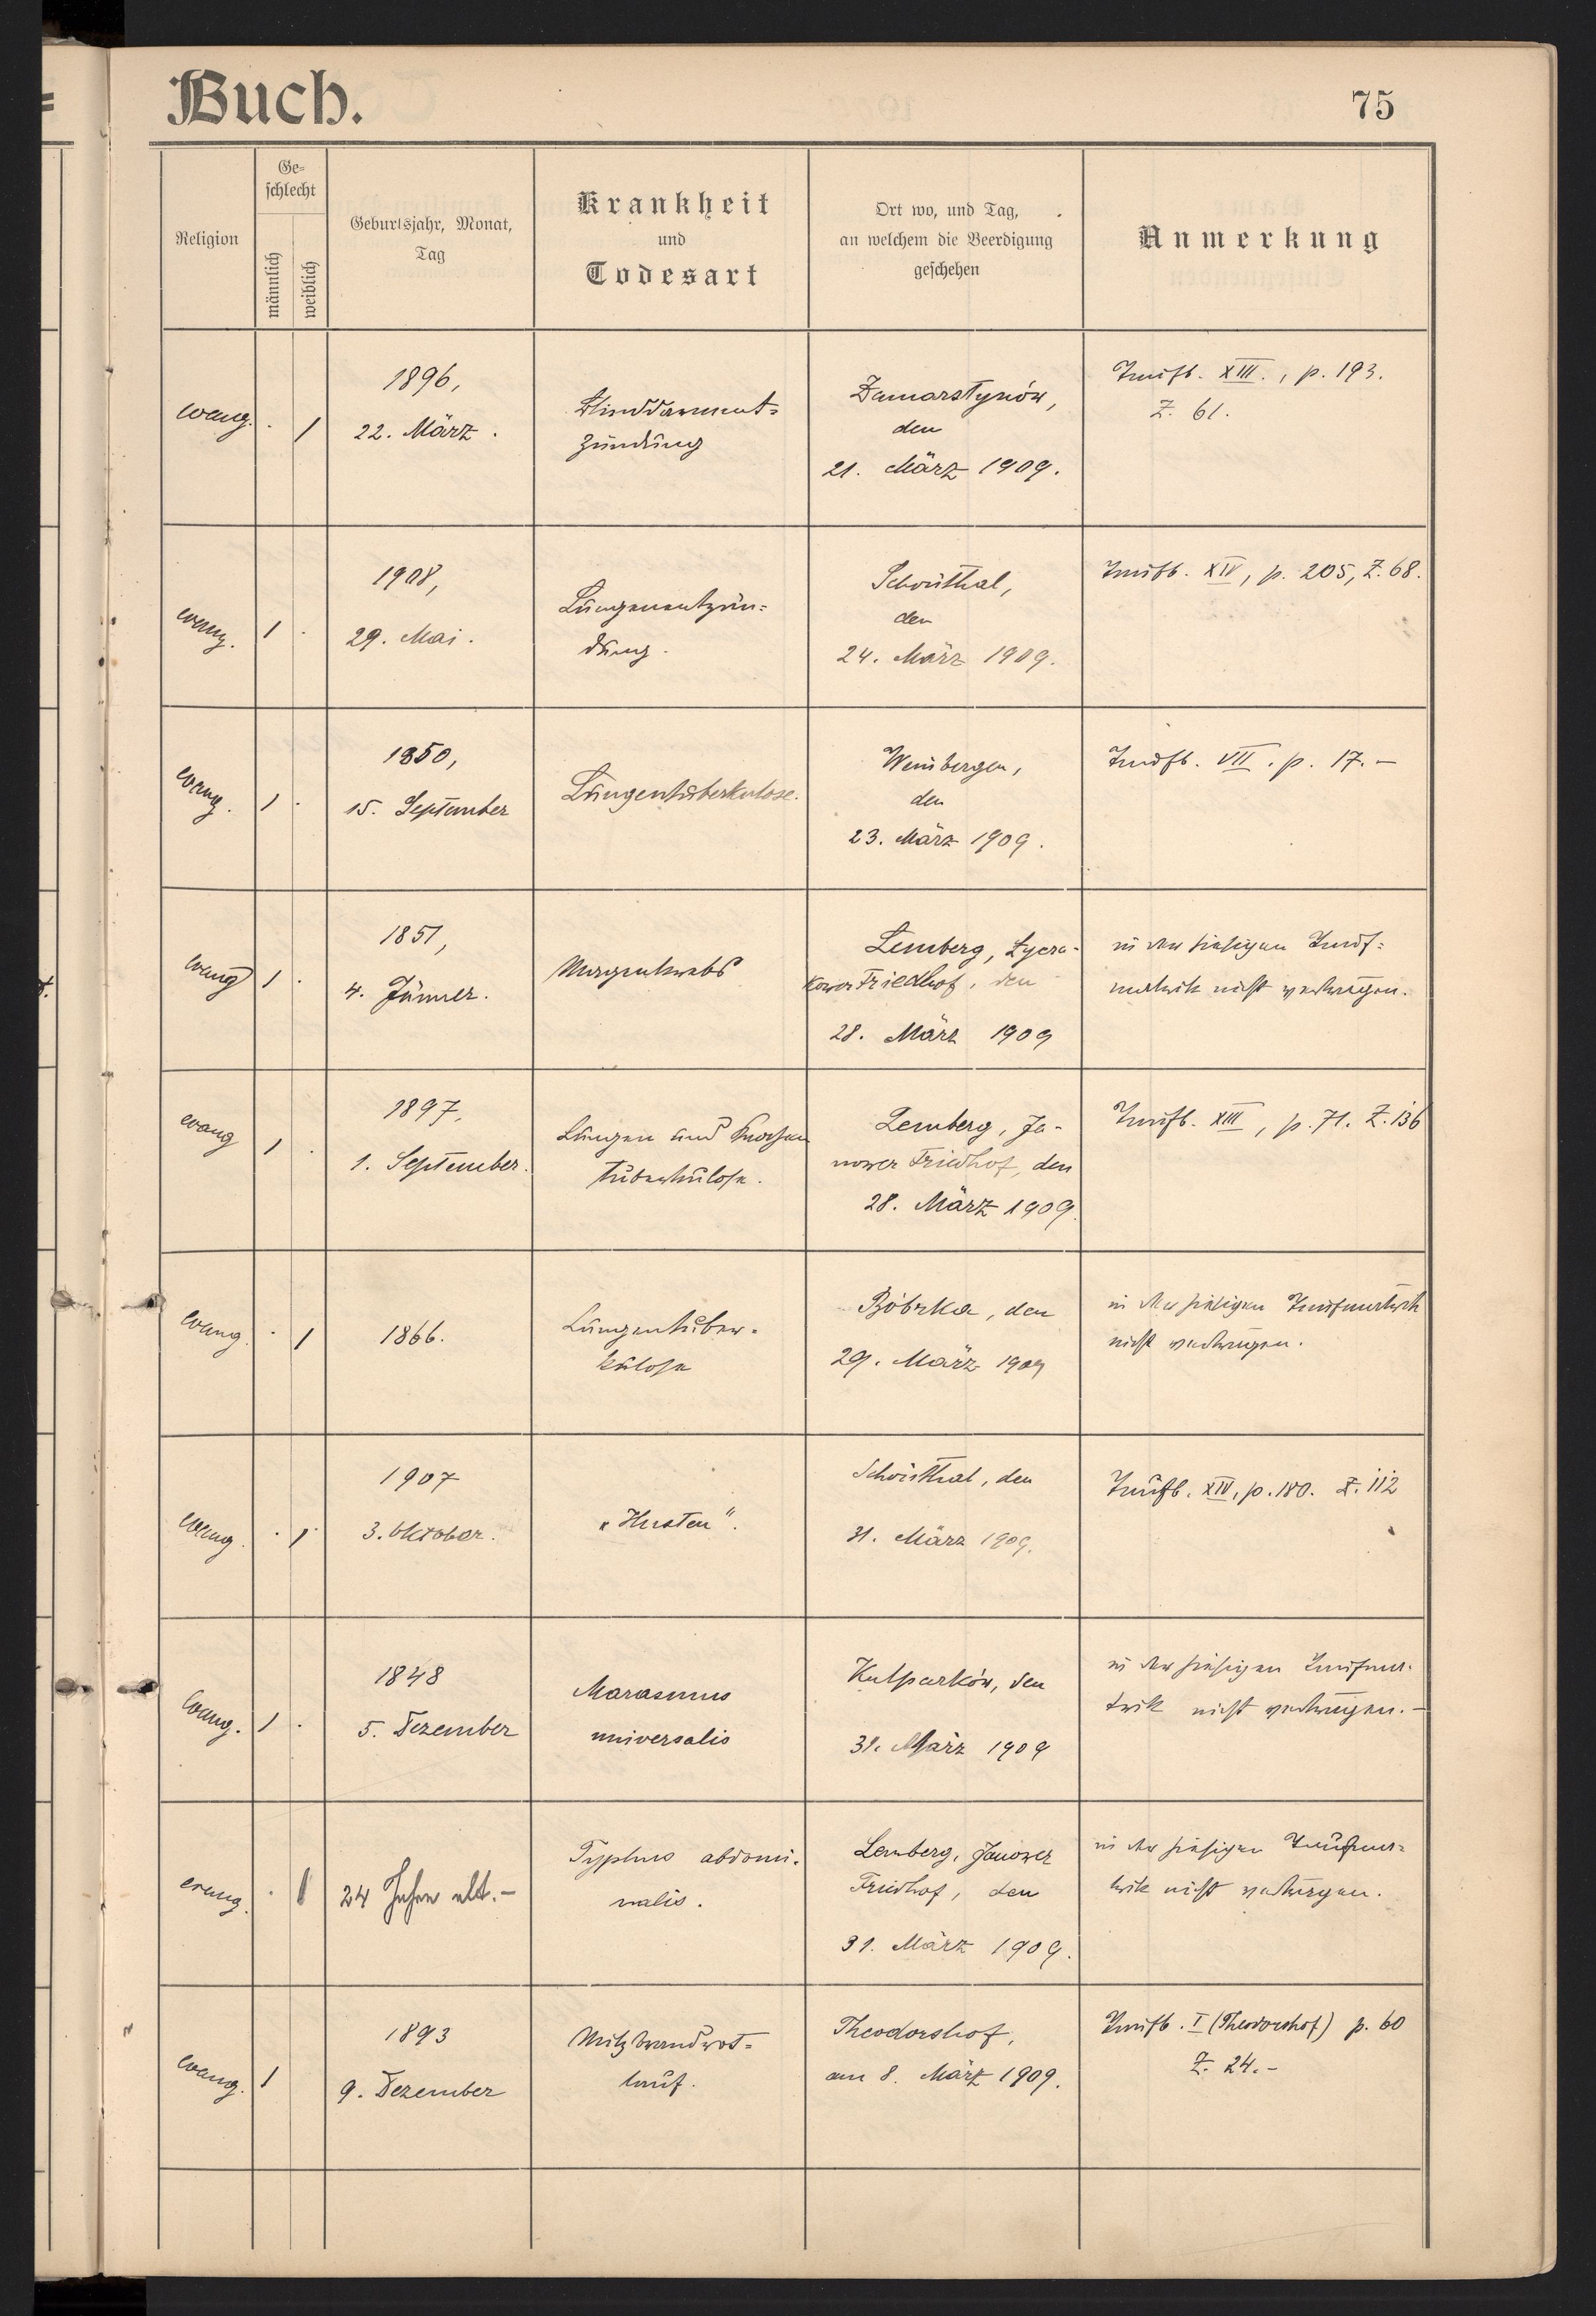 Buch.
75
Religion
Ge-
schlecht
männlich
weiblich
Geburtsjahr, Monat,
Tag
Krankheit
und
Todesart
Ort wo, und Tag,
an welchem die Beerdigung
geschehen
Anmerkung
evang. . 1
1896,
22. März .
Blinddarment-
zündung
Zamarstynów,
den
21. März 1909.
Taufb. XIII., p. 193.
Z. 61.
evang. 1 .
1908,
29. Mai.
Lungenentzün-
dung.
Schönthal,
den
24. März 1909.
Taufb. XIV, p. 205, Z. 68.
evang. 1 .
1850,
15. September
Lungentuberkulose.
Weinbergen,
den
23. März 1909.
Taufb. VII. p. 17. -
evang 1 .
1851,
4. Jänner.
Magenkrebs
Lemberg, Lycza-
kower Friedhof, den
28. März 1909
in der hiesigen Tauf-
matrik nicht eingetragen.
evang 1 .
1897,
1. September.
Lungen und Knochen
tuberkulose.
Lemberg, Ja-
nower Friedhof, den
28. März 1909.
Taufb. XIII, p. 71. Z. 136
evang. . 1
1866.
Lungentuber-
kulose
Bóbrka, den
29. März 1909
in der hiesigen Taufmatrik
nicht eingetragen.
evang. . 1
1907
3. Oktober.
"Husten".
Schönthal, den
31. März 1909.
Taufb. XIV, p. 180. Z. 112
evang. 1 .
1848
5. Dezember
Marasmus
universalis
Kulparków, den
31. März 1909
in der hiesigen Taufma-
trik nicht eingetragen. -
evang. . 1
24 Jahre alt. -
Typhus abdomi-
nalis.
Lemberg, Janower
Friedhof, den
31. März 1909.
in der hiesigen Taufma-
trik nicht eingetragen.
evang. 1
1893
9. Dezember
Milzbrandrot-
lauf.
Theodorshof,
am 8. März 1909.
Taufb. I (Theodorshof) p. 60
Z. 24. -